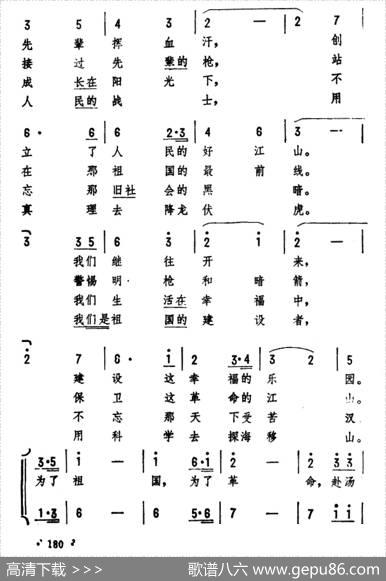 3 5 4 2 — 2 7
先 辈 挥 血 汗， 创
接 过 先 辈的 枪， 站
成 长在 阳 光 下， 不
人 民的 战 士， 不用
6· 6 6 2·3 4 6 3 — —·
立 了 人 民的 好 江 山。
在 那 祖 国的 最 前 线。
忘 那 旧社 会的 黑 暗。
真 理 去 降龙 伏 虎。
3 35 6 3 2 1 2 —
我们 继 往 开 来，
警惕 明 枪 和 暗 箭，
我们 生 活在 幸 福 中，
我们是 祖 国的 建 设 者，
2 7 6· 1 2 3·4 3 2 5
建 设 这 幸 福的 乐 园。
保 卫 这 革 命的 江 山。
不 忘 那 天 下受 苦 汉
用 科 学 去 探海 移 山。
3·5 1 — 1 6·1 2 — 2 3 3
为了 祖 国，为了 革 命，赴汤
1·3 6 — 6 5·6 7 — 7 1 1
180
高清下载 >>>
歌谱八六 www.gepu86.com